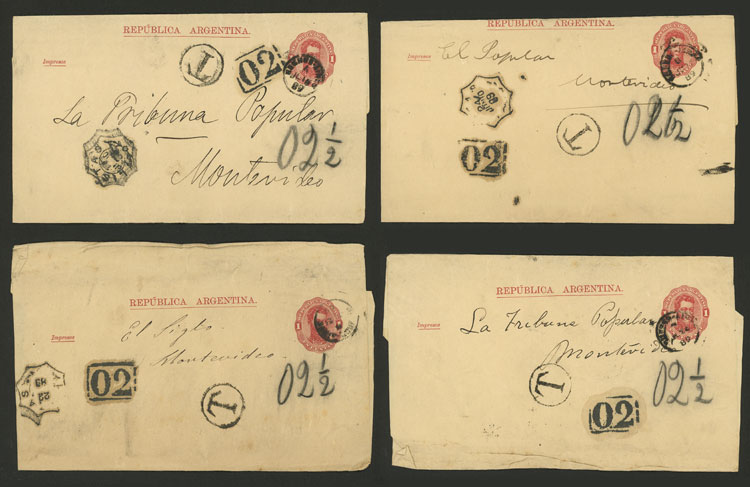 REPÚBLICA ARGENTINA.
Impresos
1
T
02
La Tribuna Popular
02 1/2
Montevideo
REPÚBLICA ARGENTINA.
Impresos
1
El Popular
Montevideo
T
02 1/2
02
REPÚBLICA ARGENTINA.
Impresos
1
El Siglo.
Montevideo
02
T
02 1/2
REPÚBLICA ARGENTINA.
Impresos
1
La Tribuna Popular
Montevideo
T
02 1/2
02